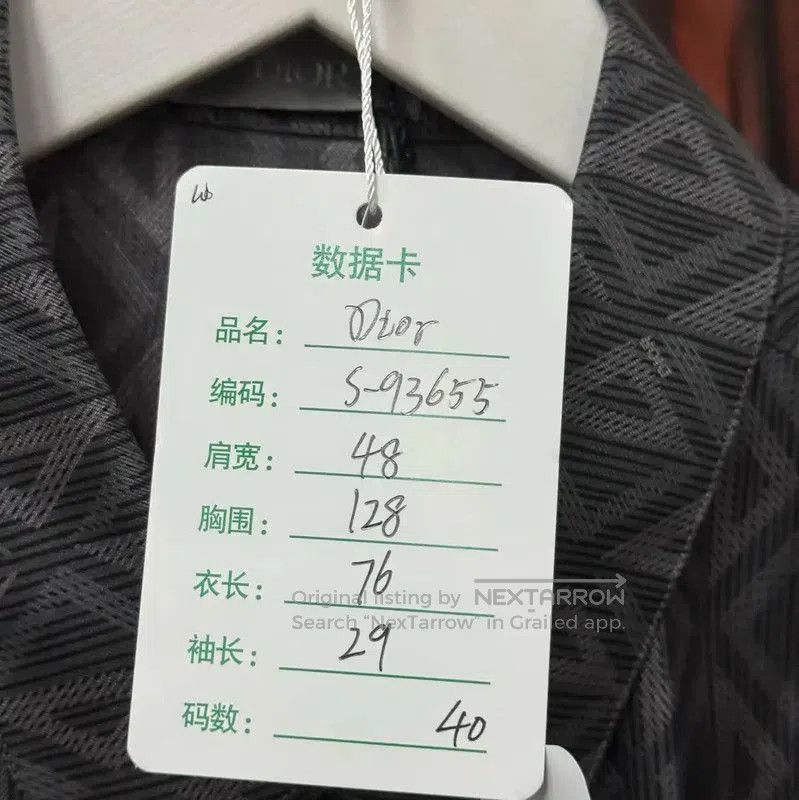 DIOR
数据卡
品名： Dior
编码： S-93655
肩宽： 48
胸围： 128
衣长： 76
袖长： 29
码数： 40
Original listing by NEXTARROW
Search "NexTarrow" in Grailed app.